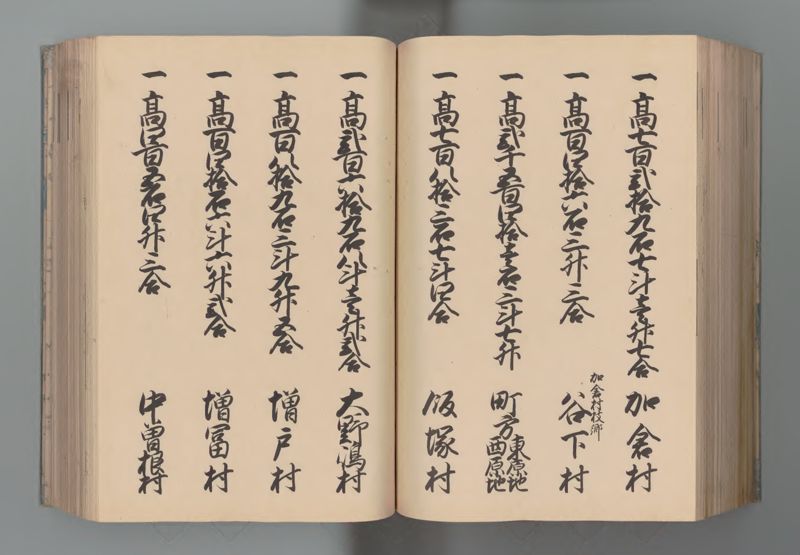 一高七百弐拾九石七斗壱升七合 加倉村
一高百四拾六石三升三合 加倉村枝郷 谷下村
一高弐千五百四拾壱石三斗七升 町方 東原地 西原地
一高七百八拾三石七斗四合 飯塚村
一高弐百六拾九石八斗壱升弐合 大野嶋村
一高百八拾九石三斗九升五合 増戸村
一高百四拾石六斗六升弐合 増冨村
一高四百五石四升三合 中曽根村